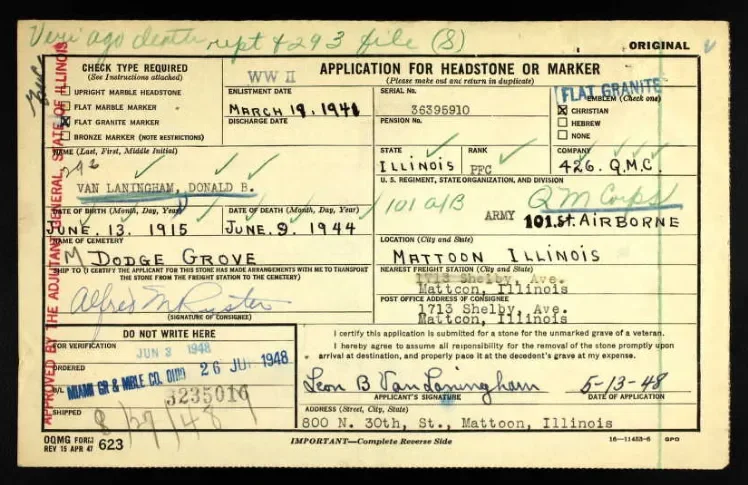 Veri ago death rept 4293 file (S)
ORIGINAL
CHECK TYPE REQUIRED
(See Instructions attached)
UPRIGHT MARBLE HEADSTONE
FLAT MARBLE MARKER
FLAT GRANITE MARKER
BRONZE MARKER (NOTE RESTRICTIONS)
WW II
ENLISTMENT DATE
MARCH 19. 1941
DISCHARGE DATE
APPLICATION FOR HEADSTONE OR MARKER
(Please make out and return in duplicate)
SERIAL No.
36395910
PENSION No.
FLAT GRANITE
EMBLEM (Check one)
CHRISTIAN
HEBREW
NONE
NAME (Last, First, Middle Initial)
VAN LANINGHAM, DONALD B.
STATE
ILLINOIS
RANK
PFC
COMPANY
426. Q.M.C.
U. S. REGIMENT, STATE ORGANIZATION, AND DIVISION
101 A/B
QM Corps
ARMY 101.st. AIRBORNE
DATE OF BIRTH (Month, Day, Year)
JUNE. 13. 1915
DATE OF DEATH (Month, Day, Year)
JUNE. 9. 1944
NAME OF CEMETERY
DODGE GROVE
LOCATION (City and State)
MATTOON ILLINOIS
SHIP TO (I CERTIFY THE APPLICANT FOR THIS STONE HAS MADE ARRANGEMENTS WITH ME TO TRANSPORT
THE STONE FROM THE FREIGHT STATION TO THE CEMETERY)
(SIGNATURE OF CONSIGNEE)
NEAREST FREIGHT STATION (City and State)
1713 Shelby, Ave.
Mattcon, Illinois
POST OFFICE ADDRESS OF CONSIGNEE
1713 Shelby, Ave.
Mattoon, Illinois
DO NOT WRITE HERE
FOR VERIFICATION
JUN 3 1948
ORDERED
MIAMI GR & MBLE CO. OHIO 26 JUL 1948
B/L
3235016
SHIPPED
8/27/48
I certify this application is submitted for a stone for the unmarked grave of a veteran.
I hereby agree to assume all responsibility for the removal of the stone promptly upon
arrival at destination, and properly place it at the decedent's grave at my expense.
Leon B Van Laningham
5-13-48
APPLICANT'S SIGNATURE
DATE OF APPLICATION
ADDRESS (Street, City, State)
800 N. 30th, St., Mattoon, Illinois
OQMG FORM 623
REV 15 APR 47
IMPORTANT—Complete Reverse Side
16—11453-6 GPO
APPROVED BY THE ADJUTANT GENERAL, STATE OF ILLINOIS